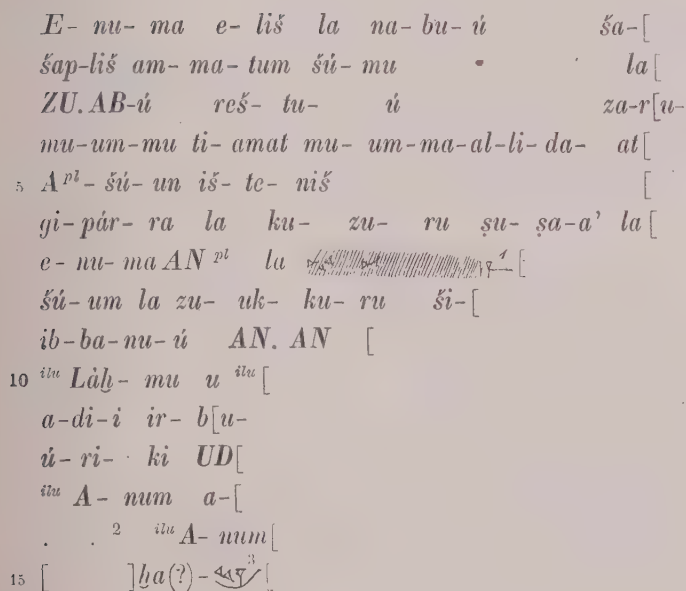 E- nu- ma e- liš la na- bu- ú ša-[
šap-liš am- ma- tum šú- mu la[
ZU. AB-ú reš- tu- ú za-r[u-
mu-um-mu ti- amat mu- um-ma-al-li-da- at[
5 A pl- šú- un iš- te- niš [
gi- pár- ra la ku- zu- ru ṣu- ṣa-a’ la[
e- nu- ma AN pl la 1 [
šú- um la zu- uk- ku- ru ši-[
ib- ba- nu- ú AN. AN [
10 ilu Làḫ- mu u ilu[
a-di-i ir- b[u-
ú- ri- ki UD[
ilu A- num a-[
. . 2 ilu A- num[
15 [ ]ḫa(?)- 3 [